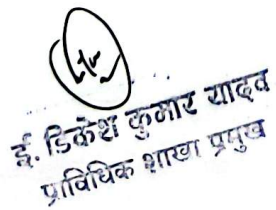 ई. डिकेश कुमार यादव
प्राविधिक शाखा प्रमुख